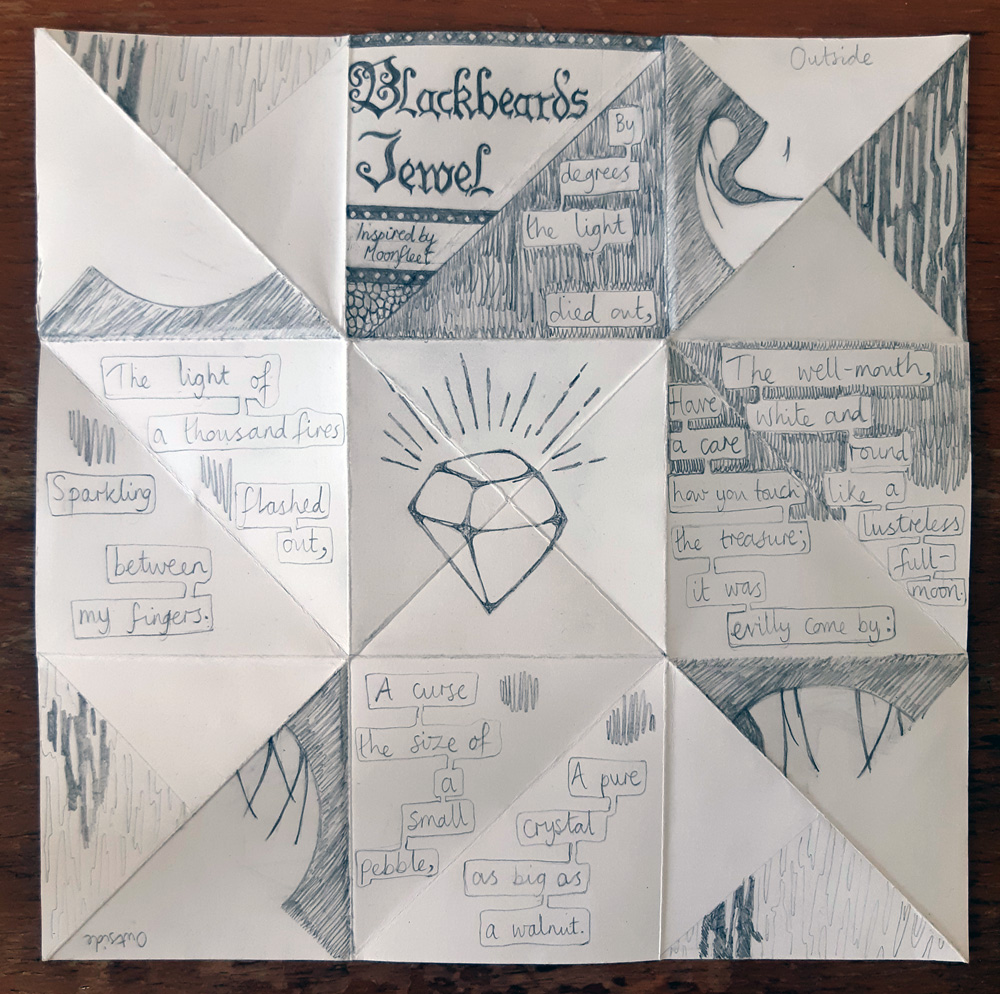 Blackbeard's
Jewel
Inspired by
Moonfleet
By
degrees
the light
died out,
Outside
The light of
a thousand fires
flashed
out,
Sparkling
between
my fingers.
Have
a care
how you touch
the treasure;
it was
evilly come by:
The well-mouth,
white and
round
like a
lustreless
full-
moon.
A curse
the size of
a
small
pebble,
A pure
crystal
as big as
a walnut.
Outside